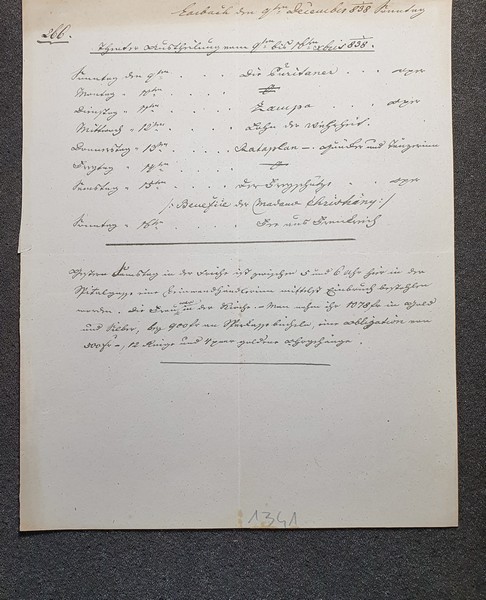 Laibach den 9ten December 838 Sonntag
266.
Theater Austheilung vom 9ten bis 16ten xbris 838.
Sonntag den 9ten . . . . Die Puritaner . . . oper
Montag " 10ten . . . .
Dienstag " 11ten . . . . Zampa . . . oper
Mittwoch " 12ten . . . . Lohn der Wahrheit.
Donnerstag " 13ten . . . . Rataplan – und Tänzerinn
Freytag " 14ten . . . .
Samstag " 15ten . . . . Der Freyschütz . . oper
/: Benefice der Madame :/
Sonntag " 16ten . . . . aus Frankreich
Gestern Samstag in der Früh ist zwischen 5 und 6 Uhr hier in der
Spitalgasse eine mittelst Einbruch bestohlen
worden. Die der Kirche – Man nahm ihr 1078 fr in Gold
und Silber, 900 fr an Sparkasse bücheln, eine obligation von
500 fr –, 12 Ringe und 4 paar goldene Ohrgehänge.
1341